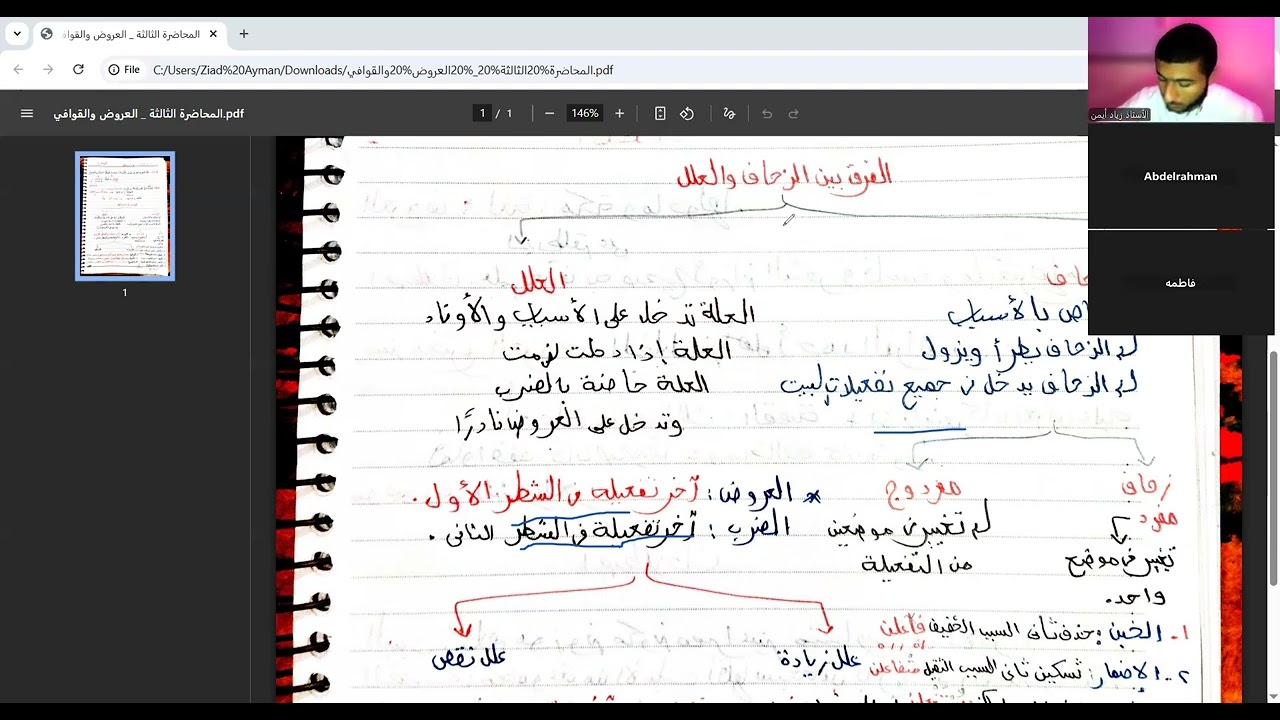 المحاضرة الثالثة _ العروض والقوافي
File C:/Users/Ziad%20Ayman/Downloads/المحاضرة%20الثالثة%20_%20العروض%20والقوافي.pdf
المحاضرة الثالثة _ العروض والقوافي.pdf
1 / 1
146%
1
الأستاذ زياد أيمن
Abdelrahman
فاطمه
الفرق بين الزحاف والعلل
العلل
بالأسباب
العلة تدخل على الأسباب والأوتاد
الزحاف يطرأ ويزول
العلة إذا دخلت لزمت
الزحاف يدخل في جميع تفعيلات البيت
العلة خاصة بالضرب
وتدخل على العروض نادرًا
زحاف
مفرد
تغيير في موضع
واحد.
مزدوج
تغيير في موضعين
من التفعيلة
* العروض: آخر تفعيلة في الشطر الأول.
الضرب: آخر تفعيلة في الشطر الثاني.
علل زيادة
علل نقص
١- الخبن: حذف ثاني السبب الخفيف فاعلن
٢- الإضمار: تسكين ثاني السبب الثقيل متفاعلن